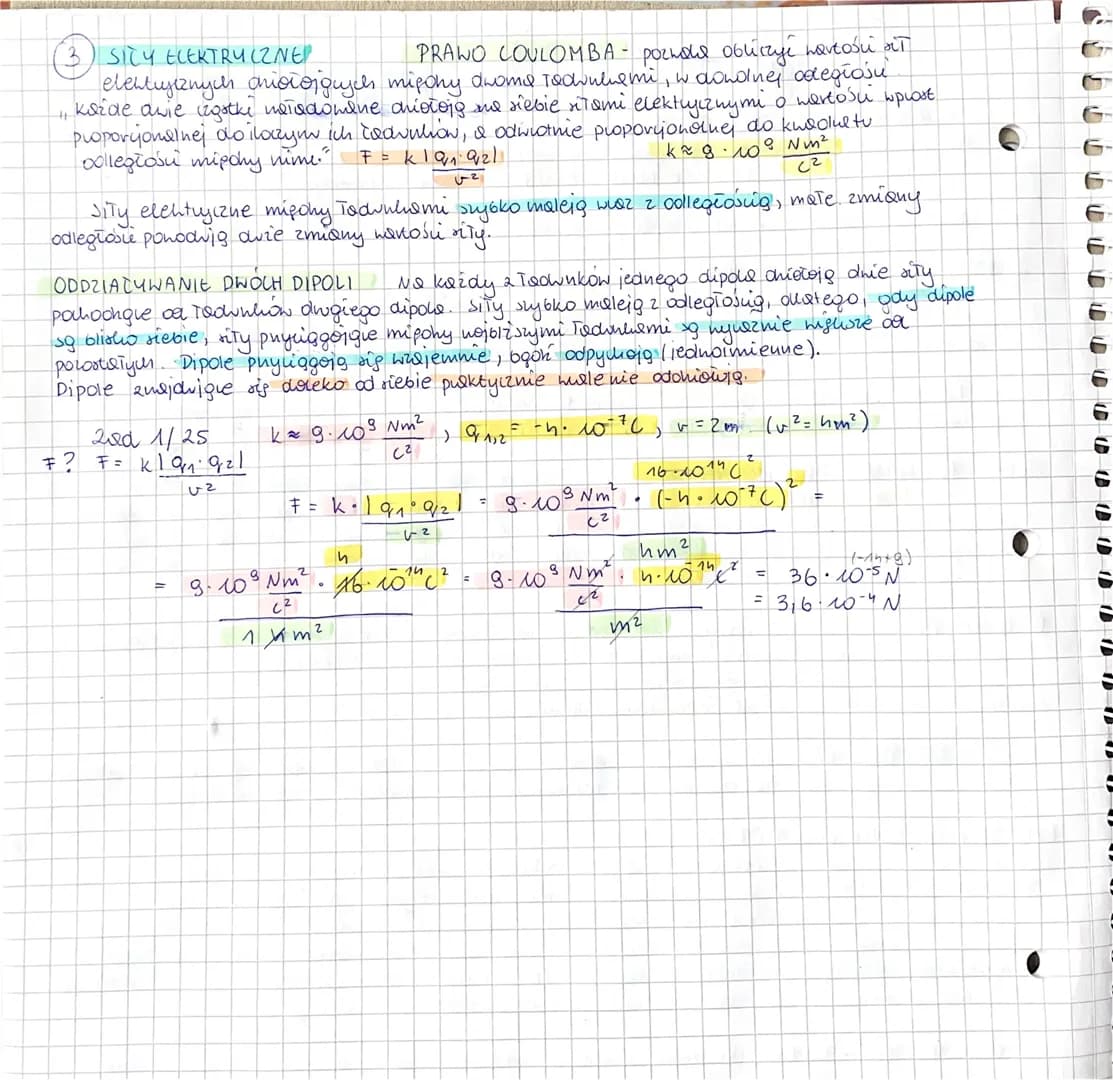 3 SIŁY ELEKTRYCZNE PRAWO COULOMBA - pozwala obliczyć wartości sił
elektrycznych działających między dwoma ładunkami, w dowolnej odległości
"każde dwie cząstki naładowane działają na siebie siłami elektrycznymi o wartości wprost
proporcjonalnej do iloczynu ich ładunków, a odwrotnie proporcjonalnej do kwadratu
odległości między nimi." F = k |q1·q2| / r² k ≈ 9·10⁹ Nm²/C²
Siły elektryczne między ładunkami szybko maleją wraz z odległością, małe zmiany
odległości powodują duże zmiany wartości siły.
ODDZIAŁYWANIE DWÓCH DIPOLI Na każdy z ładunków jednego dipola działają dwie siły
pochodzące od ładunków drugiego dipola. Siły szybko maleją z odległością, dlatego, gdy dipole
są blisko siebie, siły przyciągające między najbliższymi ładunkami są wyraźnie większe od
pozostałych. Dipole przyciągają się wzajemnie, bądź odpychają (jednoimienne).
Dipole znajdujące się daleko od siebie praktycznie wcale nie oddziałują.
Zad 1/25 k ≈ 9·10⁹ Nm²/C², q1,2 = -4·10⁻⁷C, r = 2m (r² = 4m²)
F? F = k |q1·q2| / r²
16·10¹⁴C²
F = k · |q1·q2| / r² = 9·10⁹ Nm²/C² · (-4·10⁻⁷C)² / 4m² =
4 (-14+9)
= 9·10⁹ Nm²/C² · 16·10⁻¹⁴C² / 1 4m² = 9·10⁹ Nm²/C² · 4·10⁻¹⁴C² / m² = 36·10⁻⁵N
= 3,6·10⁻⁴N